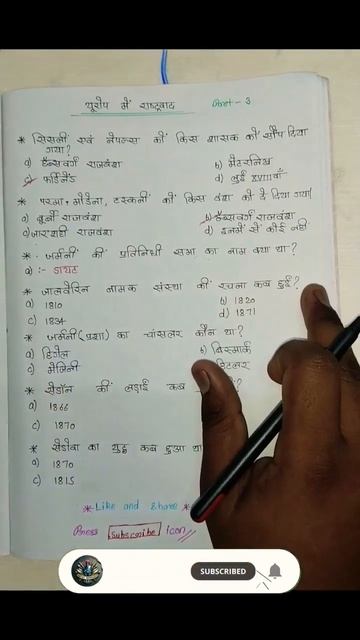 यूरोप में राष्ट्रवाद Part - 3
* सिसली एवं नेपल्स को किस शासक को सौंप दिया
गया?
a) हैब्सवर्ग राजवंश b) मेटरनिख
c) फर्डिनेंड d) लुई XVIII वाँ
* परमा, मोडेना, टस्कनी को किस वंश को दे दिया गया।
a) बूर्बो राजवंश b) हैब्सवर्ग राजवंश
c) जारशाही राजवंश d) इनमें से कोई नहीं
* जर्मनी की प्रतिनिधी सभा का नाम क्या था?
a) :- डायट
* जालवेरिन नामक संस्था की रचना कब हुई?
a) 1810 b) 1820
c) 1834 d) 1871
* जर्मनी (प्रशा) का चांसलर कौन था?
a) हिगेल b) बिस्मार्क
c) मेजिनी हिटलर
* सेडॉन की लड़ाई कब
a) 1866
c) 1870
* सेडोवा का युद्ध कब हुआ था
a) 1870
c) 1815
*-Like and Share *
Press Subscribe icon
SUBSCRIBED